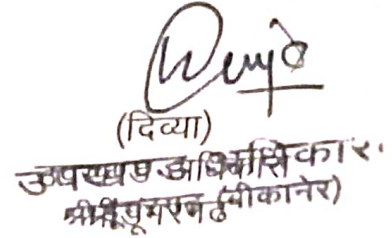 (दिव्या)
उपखण्ड अधिकारी
श्रीडूंगरगढ़ (बीकानेर)